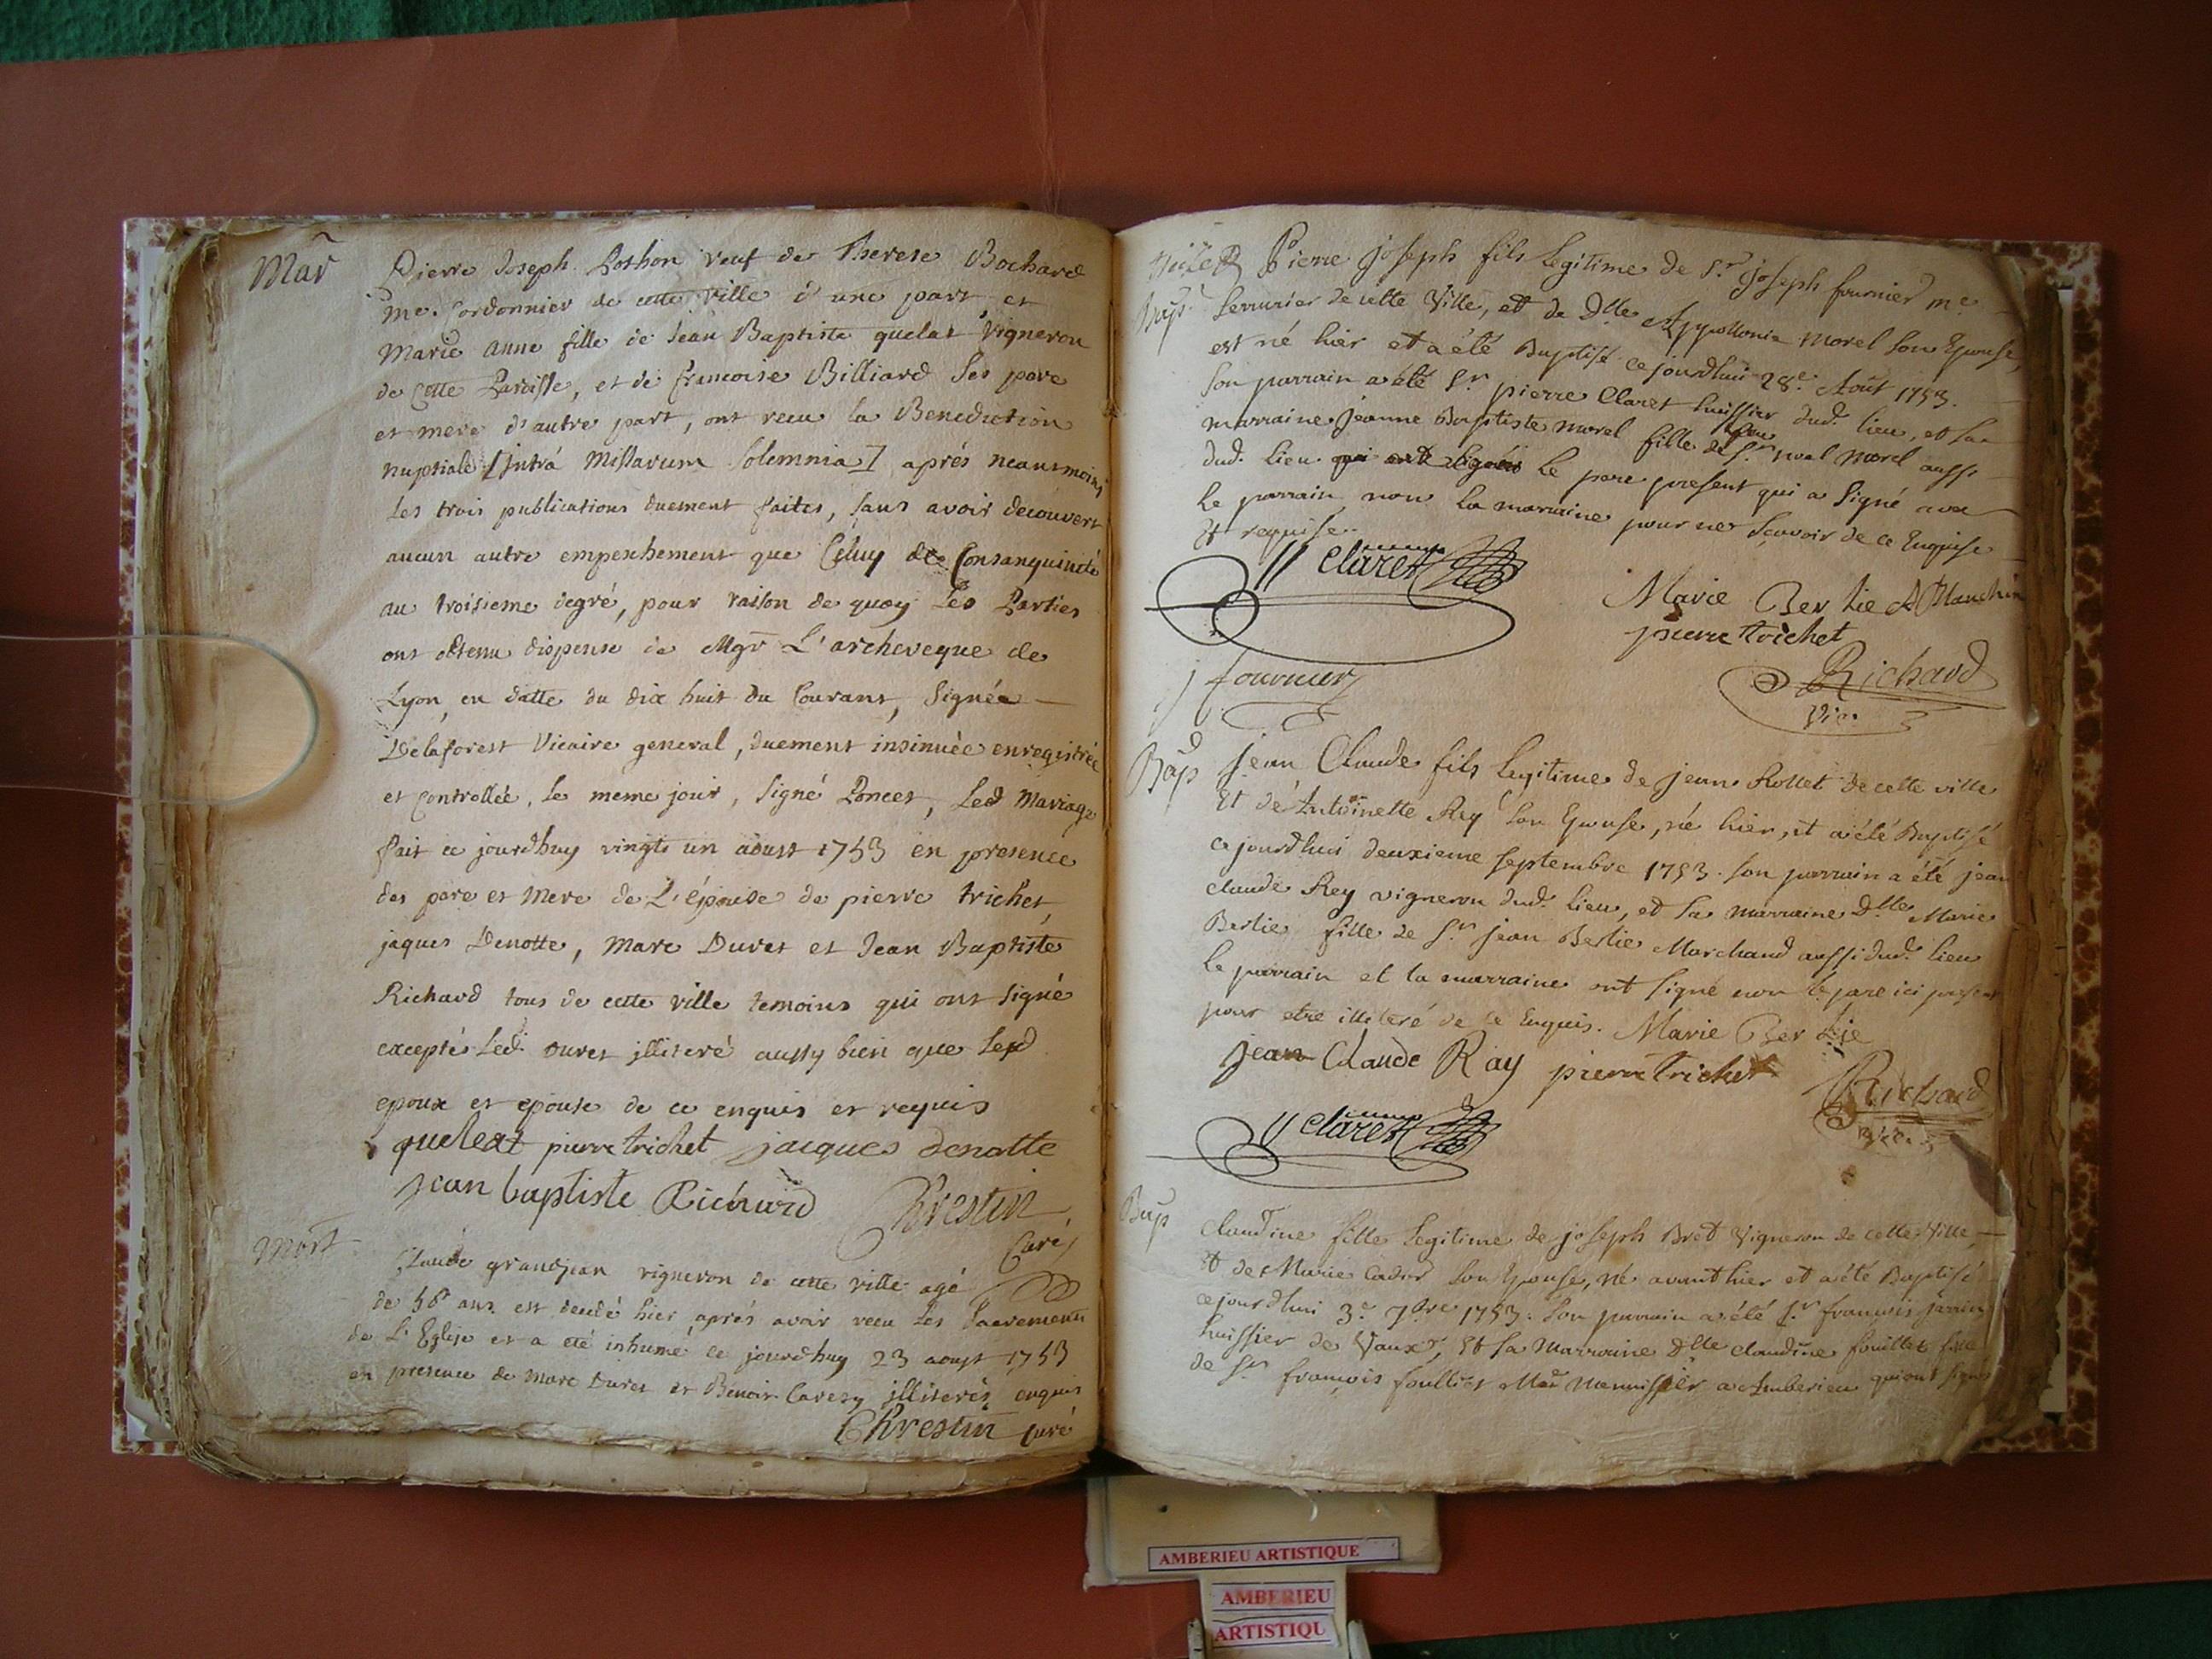 Mar
Pierre Joseph Loshon veuf de Therese Bochard
me. Cordonnier de cette ville d'une part et
Marie anne fille de Jean Baptiste quelat Vigneron
de Cette Paroisse, et de francoise Billiard Ses pere
et mere d'autre part, ont recu la Benediction
nuptiale [intrá Missarum Solemnia] aprés neantmoins
Les trois publications duement faites, sans avoir decouvert
aucun autre empeschement que Celuy de Consanguinité
au troisieme degré, pour raison de quoy Les Parties
ont obtenu dispense de Mgr L'archeveque de
Lyon, en datte du dix huit du Courant, Signée
Delaforest Vicaire general, duement insinuée enregistrée
et Controllée, le meme jour, Signé Poncet, Led Mariage
fait ce jourdhuy vingt un aoust 1753 en presence
des pere et mere de L'épouse de pierre trichet,
jaques Denotte, Marc Duret et Jean Baptiste
Richard tous de cette ville temoins qui ont Signé
excepté Led. Duret jlliteré aussy bien que Lesd
epoux et epouse de ce enquis et requis
queleat pierre trichet jacques denotte
jean baptiste Richard Chrestin
Curé
Mort
Claude grandjean vigneron de cette ville agé
de 56 ans est decedé hier, aprés avoir recu les Sacrements
de L'Eglise et a eté inhumé ce jourdhuy 23 aoust 1753
en presence de Marc Duret et Benoit Caresy jlliterés enquis
Chrestin Curé
Pierre joseph fils legitime de Sr joseph fournier me
Bap. Serrurier de cette Ville, et de Dlle Appollonie Morel son Epouse,
est né hier et a été Baptisé cejourdhui 28e. Août 1753.
Son parrain a été Sr. pierre Claret huissier dud. lieu, et sa
marraine jeanne Baptiste morel fille de feu Sr. noel Morel aussi
dud. lieu qui ont signés le pere present qui a Signé avec
le parrain non la marraine pour ne Sçavoir de ce Enquise
et requise.
Claret
Marie Ber tie
pierre trichet
j fournier
Richard
Vic.
Bap
jean Claude fils legitime de jean Rollet de cette ville
Et de Antoinette Rey son Epouse, né hier, et a été Baptisé
cejourdhui deuxieme septembre 1753. son parrain a été jean
claude Rey vigneron dud. lieu, et sa marraine Dlle Marie
Bertie fille de Sr. jean Bertie Marchand aussi dud. lieu
le parrain et la marraine ont signé non le pere ici present
pour etre illiteré de ce Enquis. Marie Ber tie
jean Claude Ray pierre trichet
Richard
Claret
Vic.
Bap
Claudine fille legitime de joseph Bret Vigneron de cette Ville,
et de Marie Cador son Epouse, né avant hier et a été Baptisé
cejourdhui 3e. 7bre 1753. son parrain a été Sr. françois jarrin
huissier de Vaux, Et sa Marraine Dlle claudine fouillet fille
de Sr. françois foulliet Md Menuisier a Amberieu qui ont signé
AMBERIEU ARTISTIQUE
AMBERIEU
ARTISTIQU